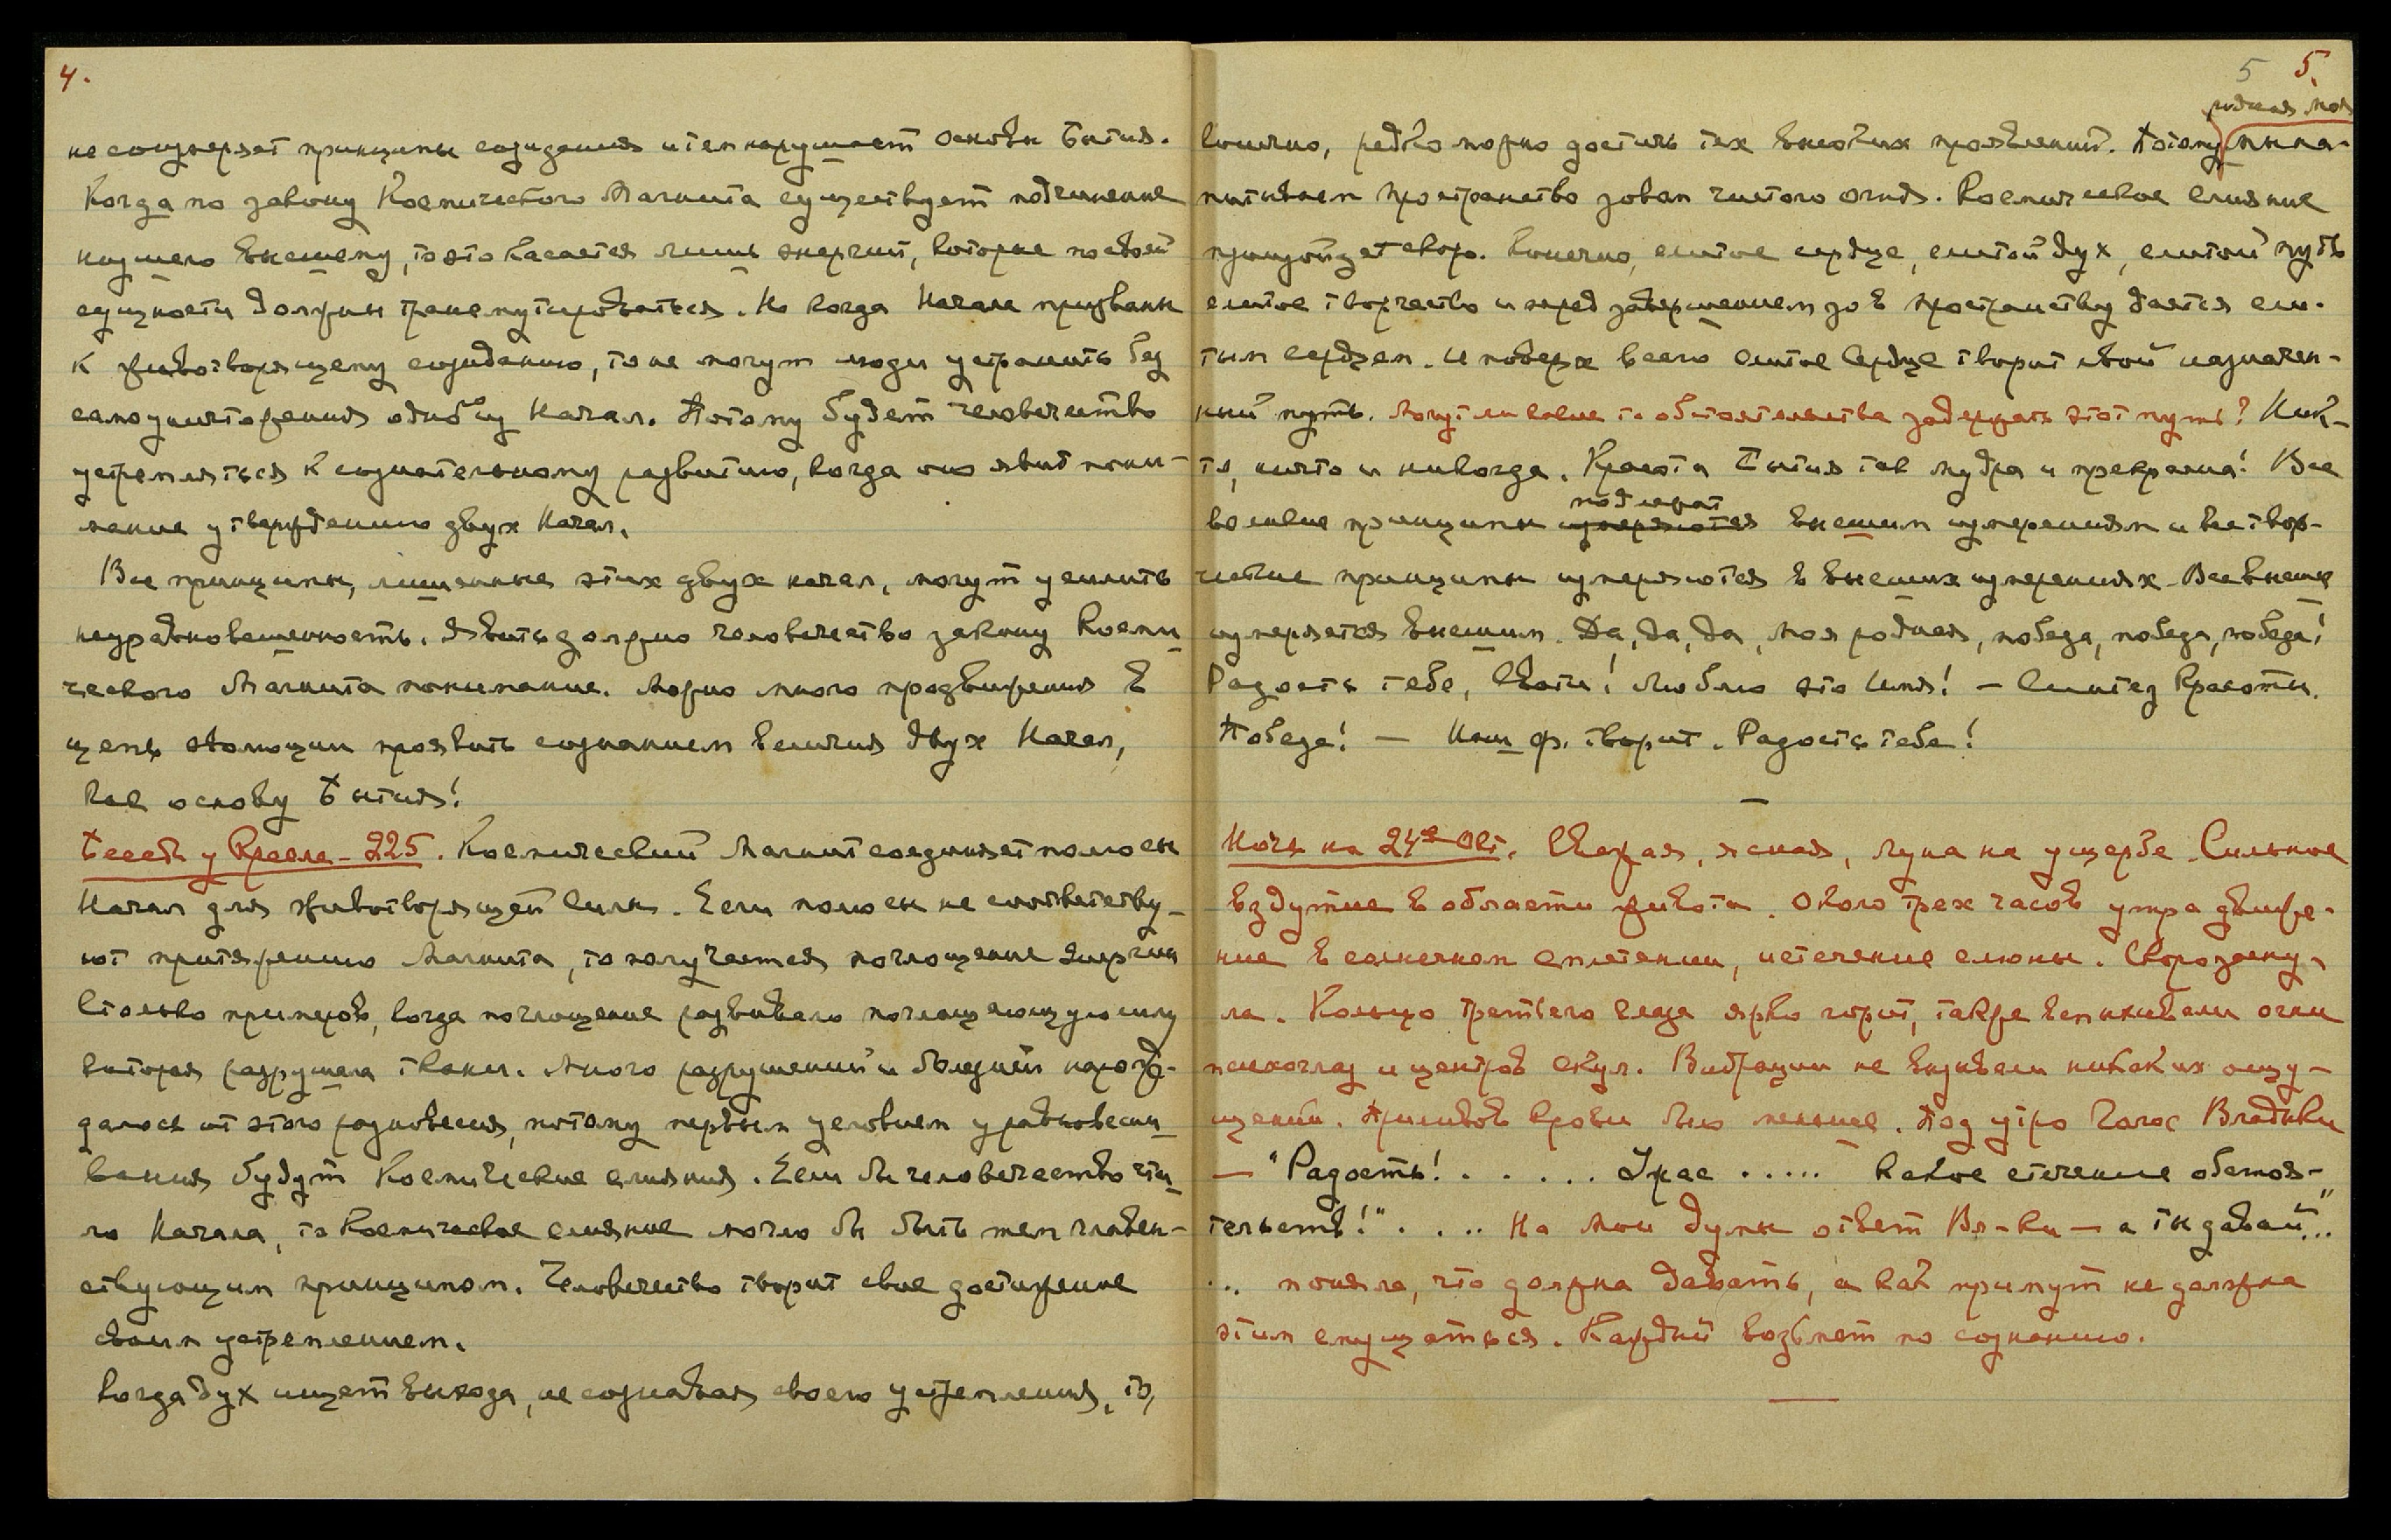 4.
не соизмеряет принципы созидания и тем нарушает основы Бытия.
Когда по закону Космического Магнита существует подчинение
низшего высшему, то это касается лишь энергий, которые по своей
сущности должны трансмутироваться. Но когда Начала призваны
к животворящему созиданию, то не могут люди устранить без
самоуничтожения одного из Начал. Потому будет человечество
устремляться к сознательному развитию, когда оно явит пони-
мание утверждению двух Начал.
Все принципы, лишенные этих двух начал, могут усилить
неуравновешенность. Явить должно человечество закону Косми-
ческого Магнита понимание. Можно много продвижения в
цепь эволюции проявить сознанием величия двух Начал,
как основу Бытия!
Беседа у Кресла - 225. Космический Магнит соединяет полюсы
Начал для животворящей силы. Если полюсы не соответству-
ют притяжению Магнита, то получается поглощение энергии
Столько примеров, когда поглощение развивало поглощающую силу
которая разрушала ткани. Много разрушений и болезней нарож-
далось от этого равновесия, потому первым условием уравновеши-
вания будут Космические слияния. Если бы человечество чти-
ло Начала, то Космическое слияние могло бы быть тем главен-
ствующим принципом. Человечество творит свое достижение
своим устремлением.
Когда дух ищет выхода, не сознавая своего устремления, то,
5 5.
родная моя
конечно, редко можно достичь тех высоких проявлений. Потому мы на-
питываем пространство зовом чистого огня. Космическое слияние
произойдет скоро. Конечно, слитое сердце, слитый дух, слитый путь
слитое творчество и перед завершением зов пространству дается сли-
тым сердцем. И поверх всего слитое Сердце творит свой назначен-
ный путь. Могут ли какие то обстоятельства задержать этот путь? Ник-
то, ничто и никогда. Красота Бытия так мудра и прекрасна! Все
подлежат
великие принципы измеряются высшим измерениям и все твор-
ческие принципы измеряются в высших измерениях. Все высшее
измеряется высшим. Да, да, да, моя родная, победа, победа, победа!
Радость тебе, Свати! Люблю это Имя! — Синтез Красоты.
Победа! — Наш ф. творит. Радость тебе!
—
Ночь на 24ое Окт. Свежая, ясная, луна на ущербе. Сильное
вздутие в области живота. Около трех часов утра движе-
ние в солнечном сплетении, истечение слюны. Скоро засну-
ла. Кольцо третьего глаза ярко горит, также вспыхивали огни
психоглаз и центров скул. Вибрации не вызывали никаких ощу-
щений. Приливов крови было меньше. Под утро Голос Владыки
— "Радость! . . . . . Ужас ..... Какое стечение обстоя-
тельств!" . . .. На мои думы ответ Вл-ки — а ты давай"...
... поняла, что должна давать, а как примут не должна
этим смущаться. Каждый возьмет по сознанию.